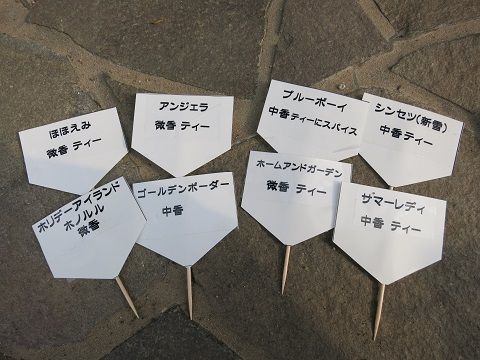 ほほえみ
微香 ティー
アンジェラ
微香 ティー
ブルーボーイ
中香 ティーにスパイス
シンセツ(新雪)
中香 ティー
ホリデーアイランド
ホノルル
微香
ゴールデンボーダー
中香
ホームアンドガーデン
微香 ティー
サマーレディ
中香 ティー